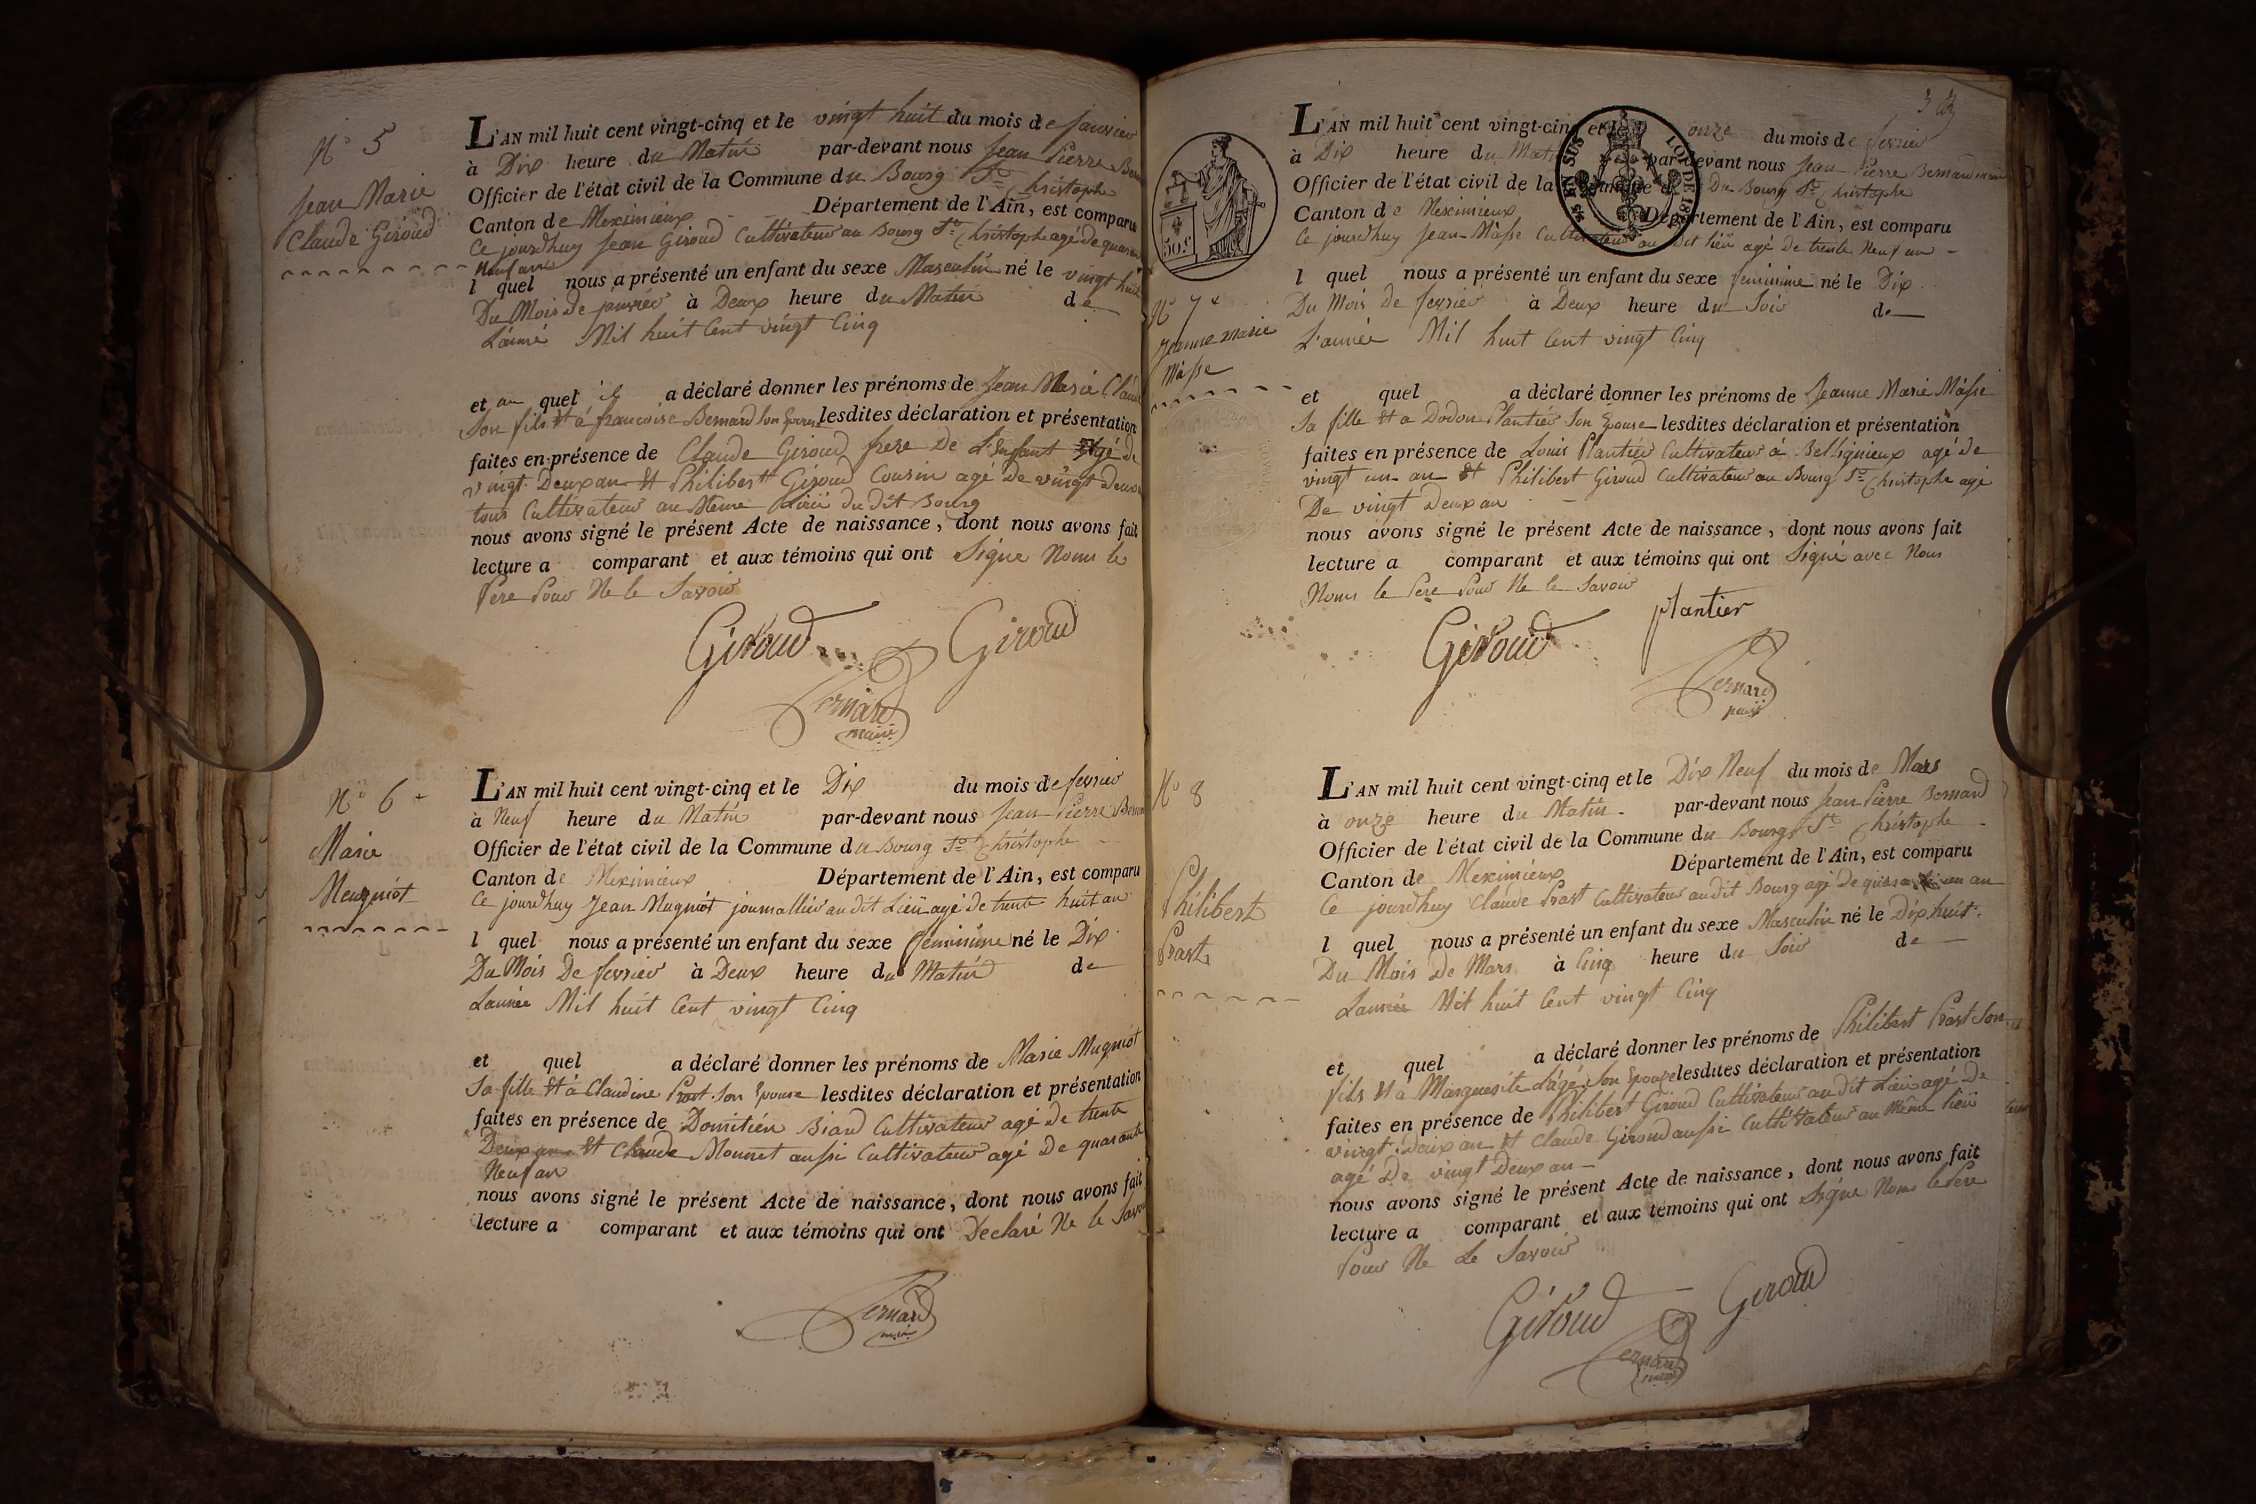 N° 5
Jean Marie
Claude Giroud
L'AN mil huit cent vingt-cinq et le vingt huit du mois de janvier
à Dix heure du Matin par-devant nous Jean Pierre
Officier de l'état civil de la Commune du Bourg St Christophe
Canton de Meximieux Département de l'Ain, est comparu
Ce jourdhuy Jean Giroud Cultivateur au Bourg St Christophe agé de
Neuf ans
l quel nous a présenté un enfant du sexe Masculin né le vingt huit
Du Mois de janvier à Deux heure du Matin de
L'année Mil huit Cent vingt Cinq
et au quel il a déclaré donner les prénoms de Jean Marie
Son fils Et a francoise Bernard Son Epouse lesdites déclaration et présentation
faites en présence de Claude Giroud frere De L'enfant agé de
vingt Deux an Et Philibert Giroud Cousin agé De vingt Deux
tous Cultivateur au Meme Lieu du dit Bourg
nous avons signé le présent Acte de naissance, dont nous avons fait
lecture a comparant et aux témoins qui ont Signe Nonis le
Pere Pour Ne le Savoir
Giroud Giroud
Bernard
maire
N° 6
Marie
Mugniot
L'AN mil huit cent vingt-cinq et le Dix du mois de fevrier
à Neuf heure du Matin par-devant nous Jean Pierre
Officier de l'état civil de la Commune du Bourg St Christophe
Canton de Meximieux Département de l'Ain, est comparu
Ce jourdhuy Jean Mugniot journallier au dit Lieu agé de trente huit an
l quel nous a présenté un enfant du sexe feminine né le Dix
Du Mois De fevrier à Deux heure du Matin de
Lannée Mil huit Cent vingt Cinq
et quel a déclaré donner les prénoms de Marie Mugniot
Sa fille Et a Claudine Prost Son Epouse lesdites déclaration et présentation
faites en présence de Domitien Biard Cultivateur agé de trente
Deux an Et Claude Monnet aussi Cultivateur agé De quarante
Neuf an
nous avons signé le présent Acte de naissance, dont nous avons fait
lecture a comparant et aux témoins qui ont Declaré Ne le Savoir
Bernard
L'AN mil huit cent vingt-cinq et le onze du mois de fevrier
à Dix heure du Matin par-devant nous Jean Pierre Bernard
Officier de l'état civil de la Commune du Bourg St Christophe
Canton de Meximieux Département de l'Ain, est comparu
Ce jourdhuy Jean Mâsse Cultivateur au dit lieu agé De trente Neuf an
l quel nous a présenté un enfant du sexe feminine né le Dix
Du Mois De fevrier à Deux heure du Soir de
L'année Mil huit Cent vingt Cinq
50 c.
N° 7
Jeanne Marie
Mâsse
et quel a déclaré donner les prénoms de Jeanne Marie Mâsse
Sa fille Et a Plantier Son Epouse lesdites déclaration et présentation
faites en présence de Louis Plantier Cultivateur à agé de
vingt un an Et Philibert Giroud Cultivateur au Bourg St Christophe agé
De vingt Deux an
nous avons signé le présent Acte de naissance, dont nous avons fait
lecture a comparant et aux témoins qui ont Signé avec Nous
Nonis le Pere Pour Ne le Savoir
Giroud plantier
Bernard
N° 8
Philibert
Prost
L'AN mil huit cent vingt-cinq et le Dix Neuf du mois de Mars
à onze heure du Matin par-devant nous Jean Pierre Bernard
Officier de l'état civil de la Commune du Bourg St Christophe
Canton de Meximieux Département de l'Ain, est comparu
Ce jourdhuy Claude Prost Cultivateur au dit Bourg agé De an
l quel nous a présenté un enfant du sexe Masculin né le Dix huit
Du Mois De Mars à Cinq heure du Soir de
Lannée Mil huit Cent vingt Cinq
et quel a déclaré donner les prénoms de Philibert Prost Son
fils Et a Marguerite Son Epouse lesdites déclaration et présentation
faites en présence de Philibert Giroud Cultivateur au dit Lieu agé De
vingt Deux an Et Claude Giroud aussi Cultivateur au Même lieu
agé De vingt Deux an
nous avons signé le présent Acte de naissance, dont nous avons fait
lecture a comparant et aux témoins qui ont Signe Nonis le Pere
Pour Ne Le Savoir
Giroud Giroud
Bernard